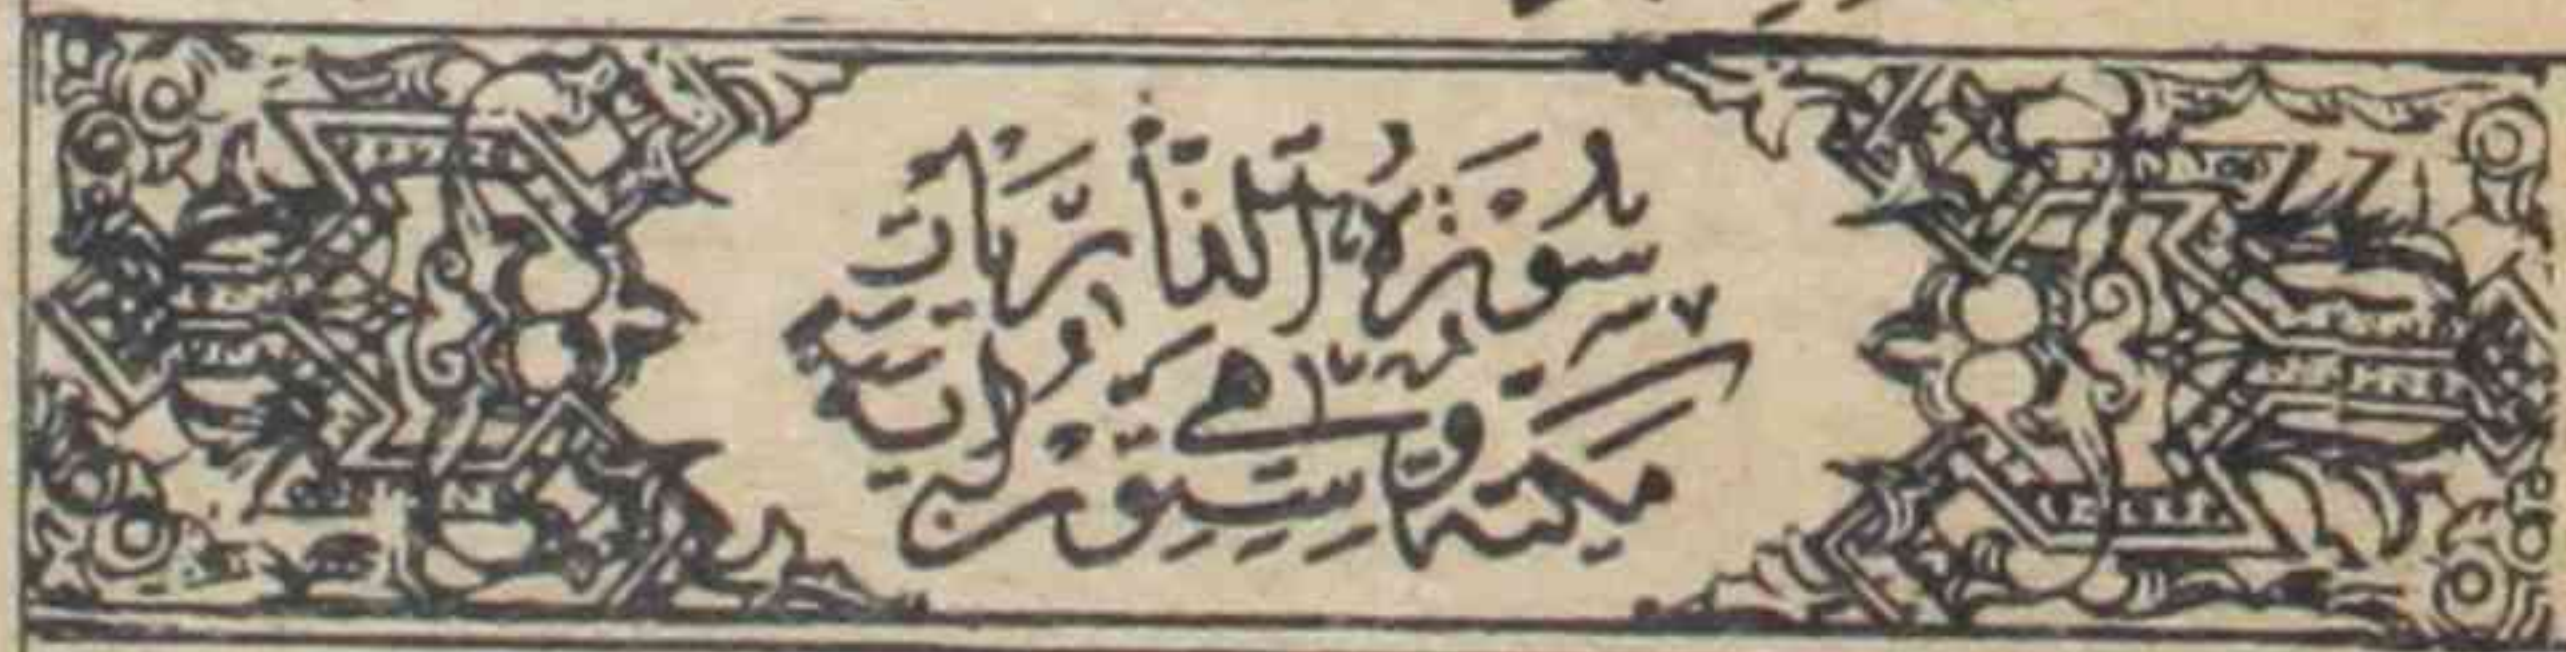 سُورَةُ الذَّارِيَاتِ
مَكِّيَّةٌ وَهِيَ سِتُّونَ آيَةً